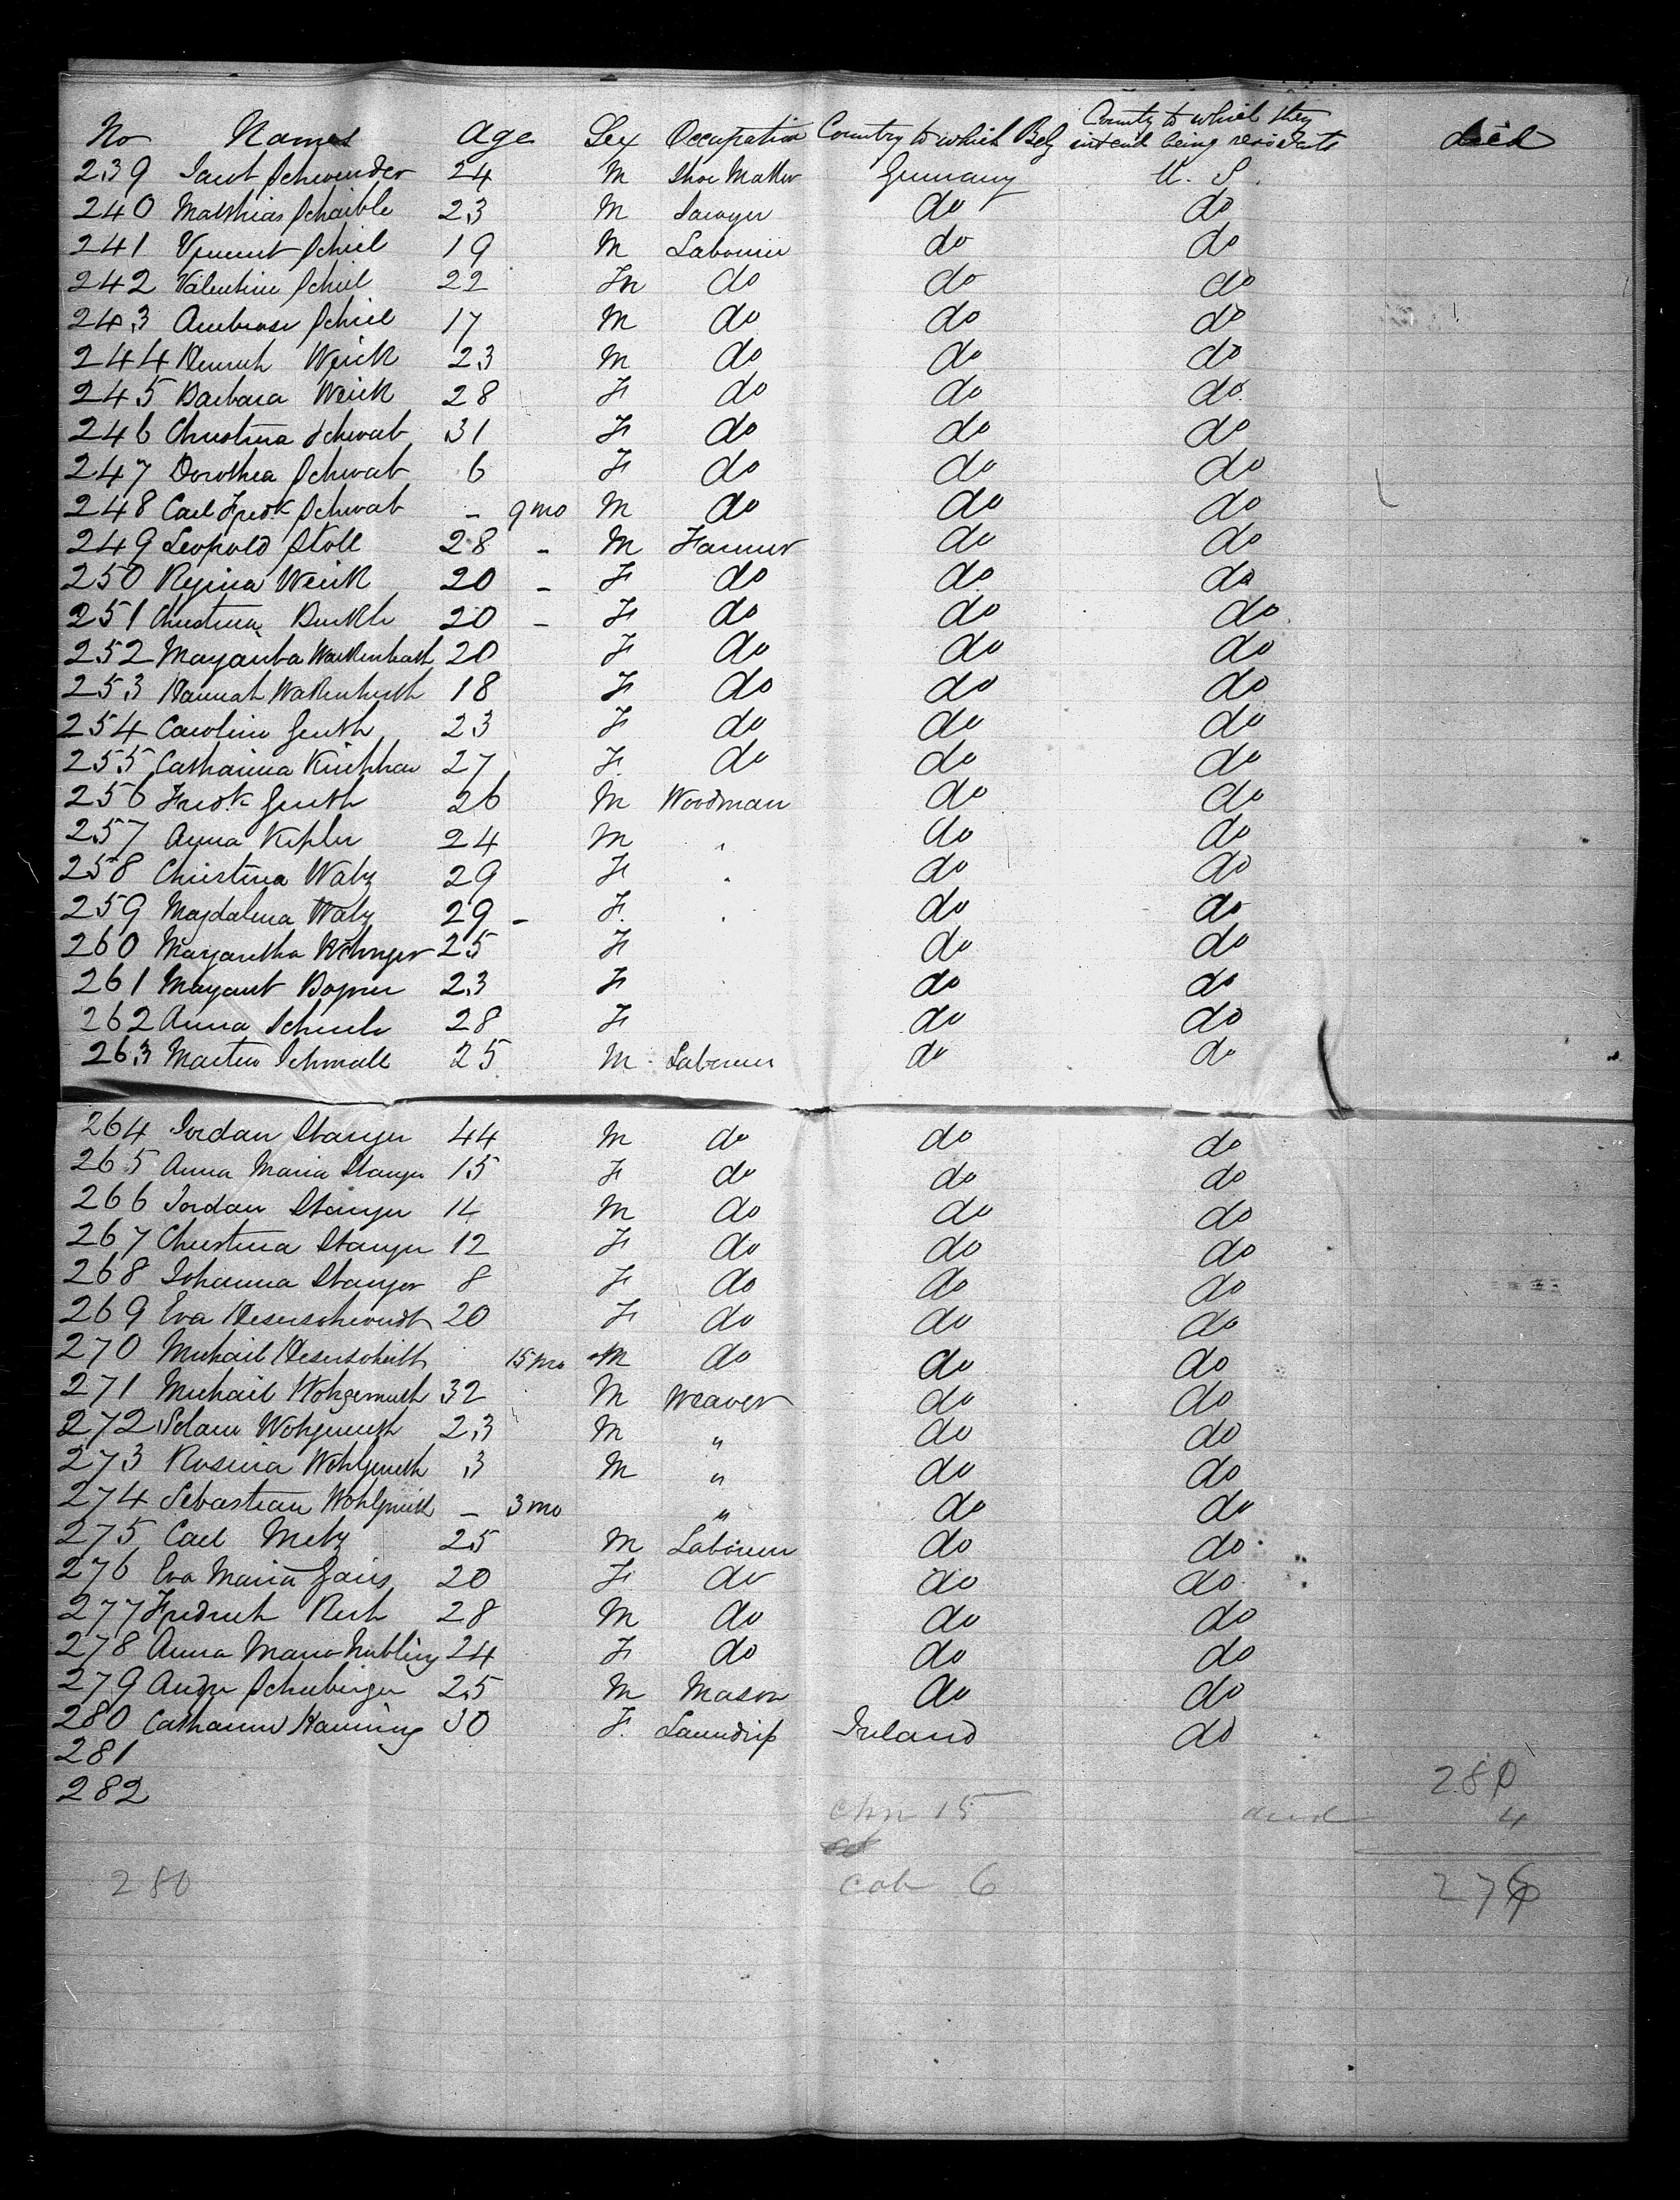 No Names Age Sex Occupation Country to which Belg County to which they intend being residents died
239 Jacob Schwender 24 M Shoe Maker Germany U. S.
240 Matthias Schaible 23 M Sawyer do do
241 Vincent Schiel 19 M Labourer do do
242 Valentine Schiel 22 M do do do
243 Ambrose Schiel 17 M do do do
244 Henrich Weick 23 M do do do
245 Barbara Weick 28 F do do do
246 Christina Schwab 31 F do do do
247 Dorothea Schwab 6 F do do do
248 Carl Fredk Schwab - 9 mo M do do do
249 Leopold Stoll 28 - M Farmer do do
250 Regina Weick 20 - F do do do
251 Christina 20 - F do do do
252 20 F do do do
253 Hannah 18 F do do do
254 Caroline Genth 23 F do do do
255 Catharina 27 F do do do
256 Fredk Genth 26 M Woodman do do
257 Anna Kepler 24 M do do
258 Christina Walz 29 F do do
259 Magdalena Walz 29 - F do do
260 Margaretha 25 F do do
261 23 F do do
262 Anna 28 F do do
263 Martin Schmall 25 M Labourer do do
264 Jordan Stanger 44 M do do do
265 Anna Maria Stanger 15 F do do do
266 Jordan Stanger 14 M do do do
267 Christina Stanger 12 F do do do
268 Johanna Stanger 8 F do do do
269 Eva 20 F do do do
270 Michail 15 mo M do do do
271 Michail Wohgemuth 32 M Weaver do do
272 Wohgemuth 23 M " do do
273 Rosina Wohlgemuth 3 M " do do
274 Sebastian Wohlgemuth - 3 mo " do do
275 Carl Metz 25 M Labourer do do
276 Eva Maria Gais 20 F do do do
277 Fredrich 28 M do do do
278 Anna Maria Nubling 24 F do do do
279 25 M Mason do do
280 Catharine Hanning 30 F Ireland do
281
282
280
chn 15 4
cab 6 276
280